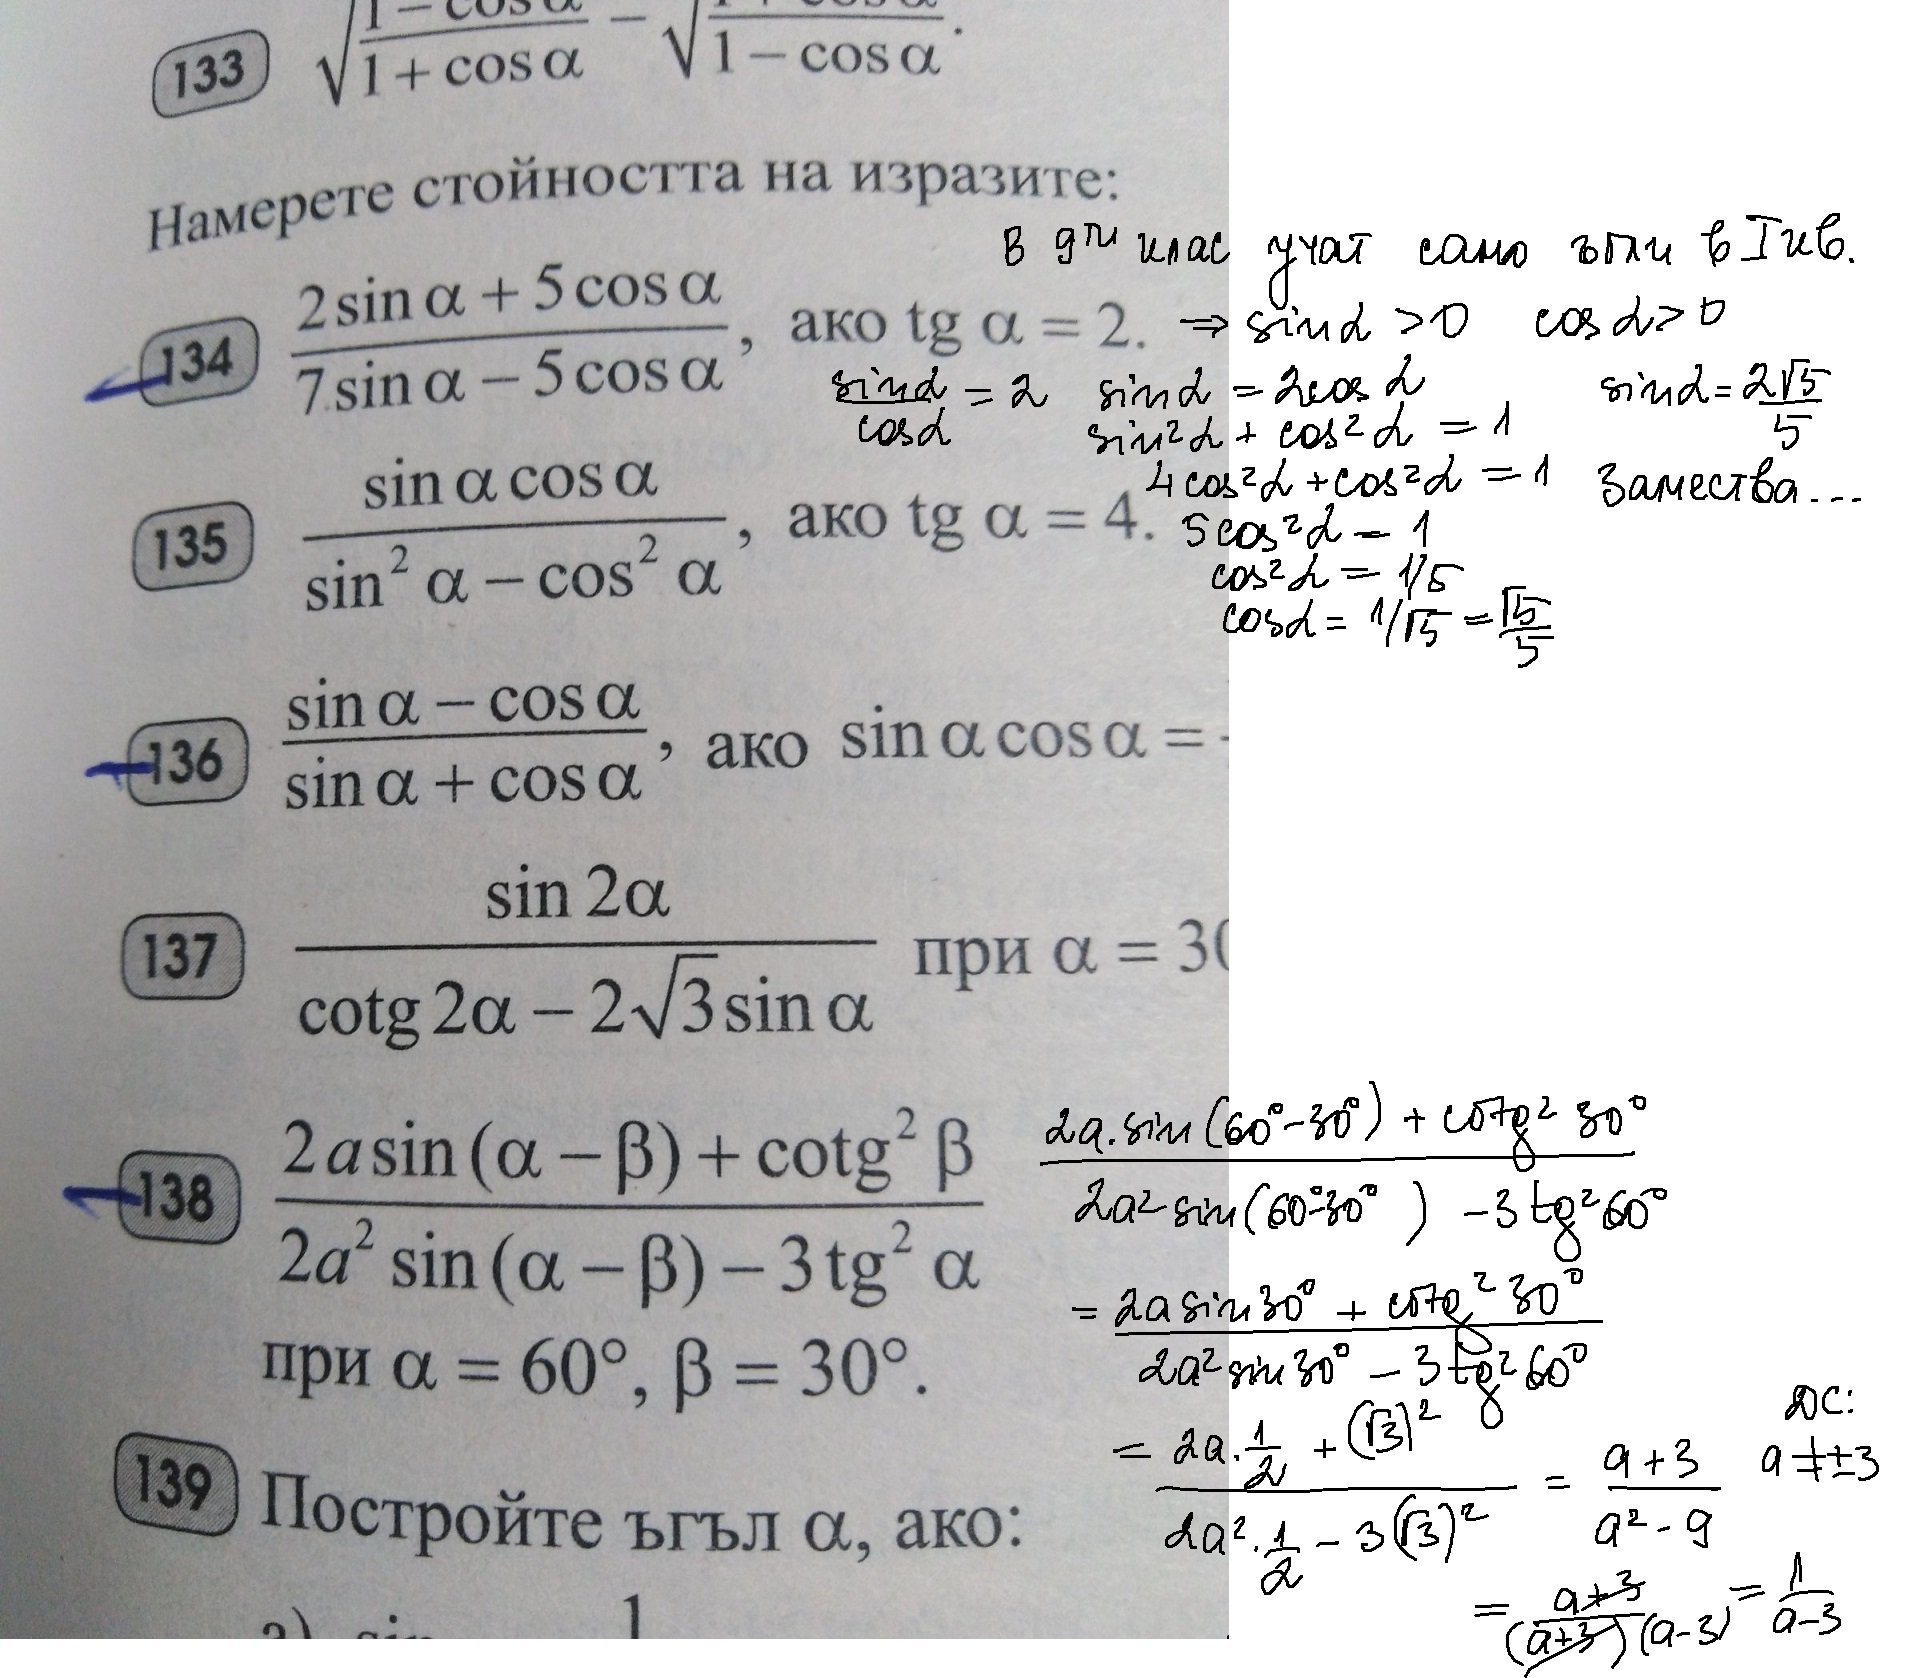 133 √((1 − cos α)/(1 + cos α)) − √((1 + cos α)/(1 − cos α)).
Намерете стойността на изразите:
В 9ти клас учат само ъгли в I кв.
134 (2 sin α + 5 cos α)/(7 sin α − 5 cos α), ако tg α = 2.
⇒ sin α > 0 cos α > 0
sin α/cos α = 2 sin α = 2cos α sin α = 2√5/5
sin² α + cos² α = 1
4cos² α + cos² α = 1 Замества...
5cos² α = 1
cos² α = 1/5
cos α = 1/√5 = √5/5
135 (sin α cos α)/(sin² α − cos² α), ако tg α = 4.
136 (sin α − cos α)/(sin α + cos α), ако sin α cos α =
137 sin 2α/(cotg 2α − 2√3 sin α) при α = 30
138 (2a sin (α − β) + cotg² β)/(2a² sin (α − β) − 3 tg² α)
при α = 60°, β = 30°.
(2a.sin(60°−30°) + cotg² 30°)/(2a² sin(60°−30°) − 3 tg² 60°)
= (2a sin 30° + cotg² 30°)/(2a² sin 30° − 3 tg² 60°)
= (2a.1/2 + (√3)²)/(2a².1/2 − 3(√3)²) = (a + 3)/(a² − 9)
ДС:
a ≠ ±3
= (a+3)/((a+3)(a−3)) = 1/(a−3)
139 Постройте ъгъл α, ако:
а) sin 1